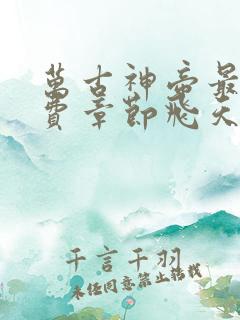 萬古神帝最
費章節飛天
千言千羽
未经同意禁止转载